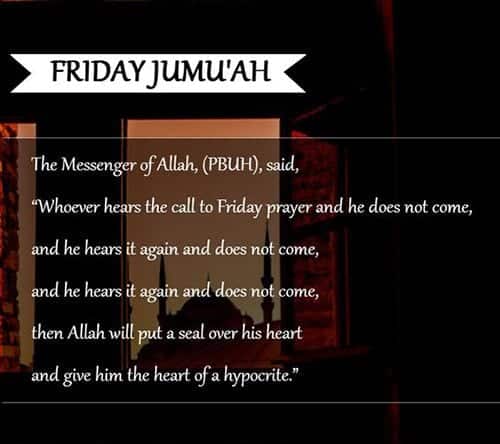 FRIDAY JUMU'AH
The Messenger of Allah, (PBUH), said,
“Whoever hears the call to Friday prayer and he does not come,
and he hears it again and does not come,
and he hears it again and does not come,
then Allah will put a seal over his heart
and give him the heart of a hypocrite.”